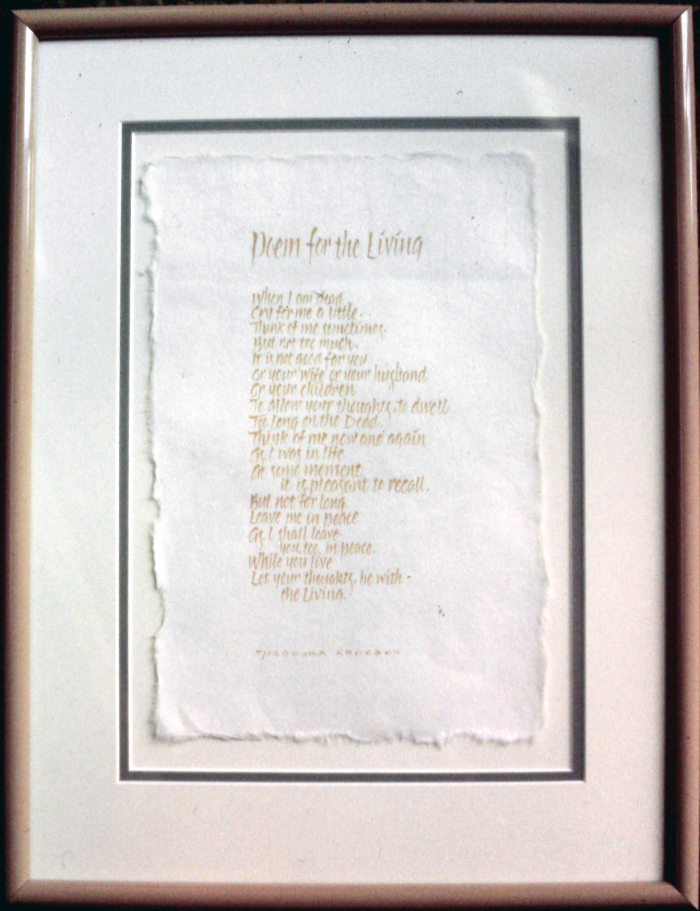 Poem for the Living
When I am dead
Cry for me a little.
Think of me sometimes.
But not too much.
It is not good for you
Or your wife or your husband
Or your children
To allow your thoughts to dwell
Too long on the Dead.
Think of me now and again
As I was in life
At some moment
it is pleasant to recall.
But not for long.
Leave me in peace
As I shall leave
you, too, in peace.
While you live
Let your thoughts be with
the Living.
THEODORA KROEBER